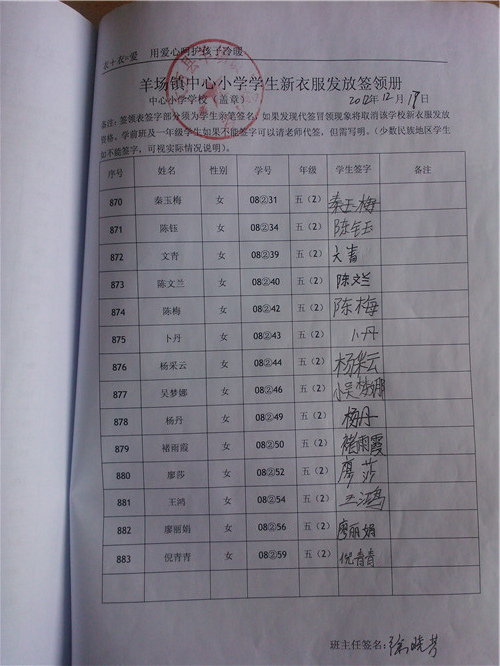 衣+衣=爱 用爱心呵护孩子冷暖
羊场镇中心小学学生新衣服发放签领册
中心小学学校（盖章） 2012年12月19日
备注：签领表签字部分须为学生亲笔签名，如果发现代签冒领现象将取消该学校新衣服发放
资格。学前班及一年级学生如果不能签字可以请老师代签，但需写明。（少数民族地区学生
如不能签字，可视实际情况说明）。
序号 姓名 性别 学号 年级 学生签字 备注
870 秦玉梅 女 08②31 五（2） 秦玉梅
871 陈钰 女 08②34 五（2） 陈钰
872 文青 女 08②39 五（2） 文青
873 陈文兰 女 08②40 五（2） 陈文兰
874 陈梅 女 08②42 五（2） 陈梅
875 卜丹 女 08②43 五（2） 卜丹
876 杨采云 女 08②44 五（2） 杨采云
877 吴梦娜 女 08②46 五（2） 吴梦娜
878 杨丹 女 08②49 五（2） 杨丹
879 褚雨霞 女 08②50 五（2） 褚雨霞
880 廖莎 女 08②52 五（2） 廖莎
881 王鸿 女 08②54 五（2） 王鸿
882 廖丽娟 女 08②56 五（2） 廖丽娟
883 倪青青 女 08②59 五（2） 倪青青
班主任签名：徐晓芳